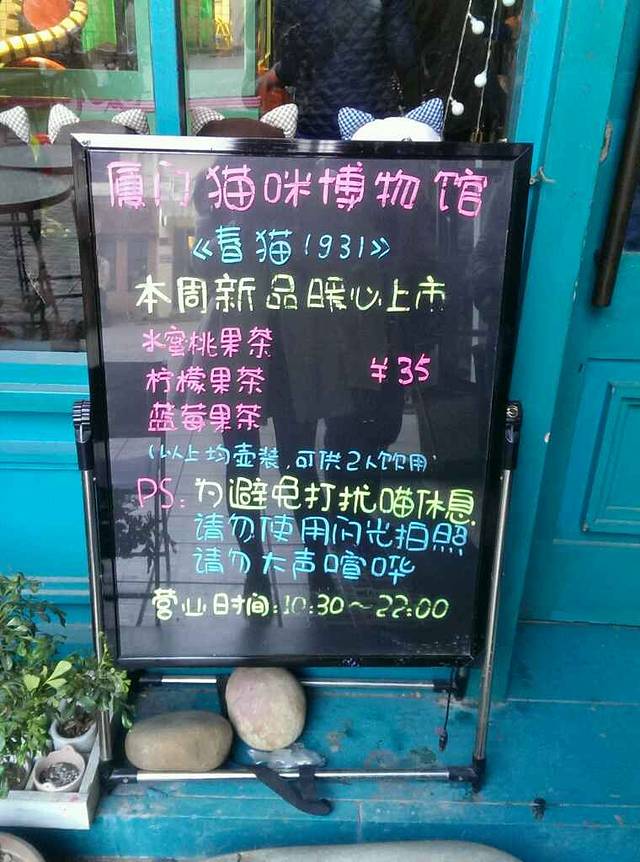 厦门猫咪博物馆
《春猫1931》
本周新品暖心上市
水蜜桃果茶
柠檬果茶 ¥35
蓝莓果茶
(以上均壶装,可供2人饮用)
PS:为避免打扰喵休息
请勿使用闪光拍照
请勿大声喧哗
营业时间:10:30~22:00